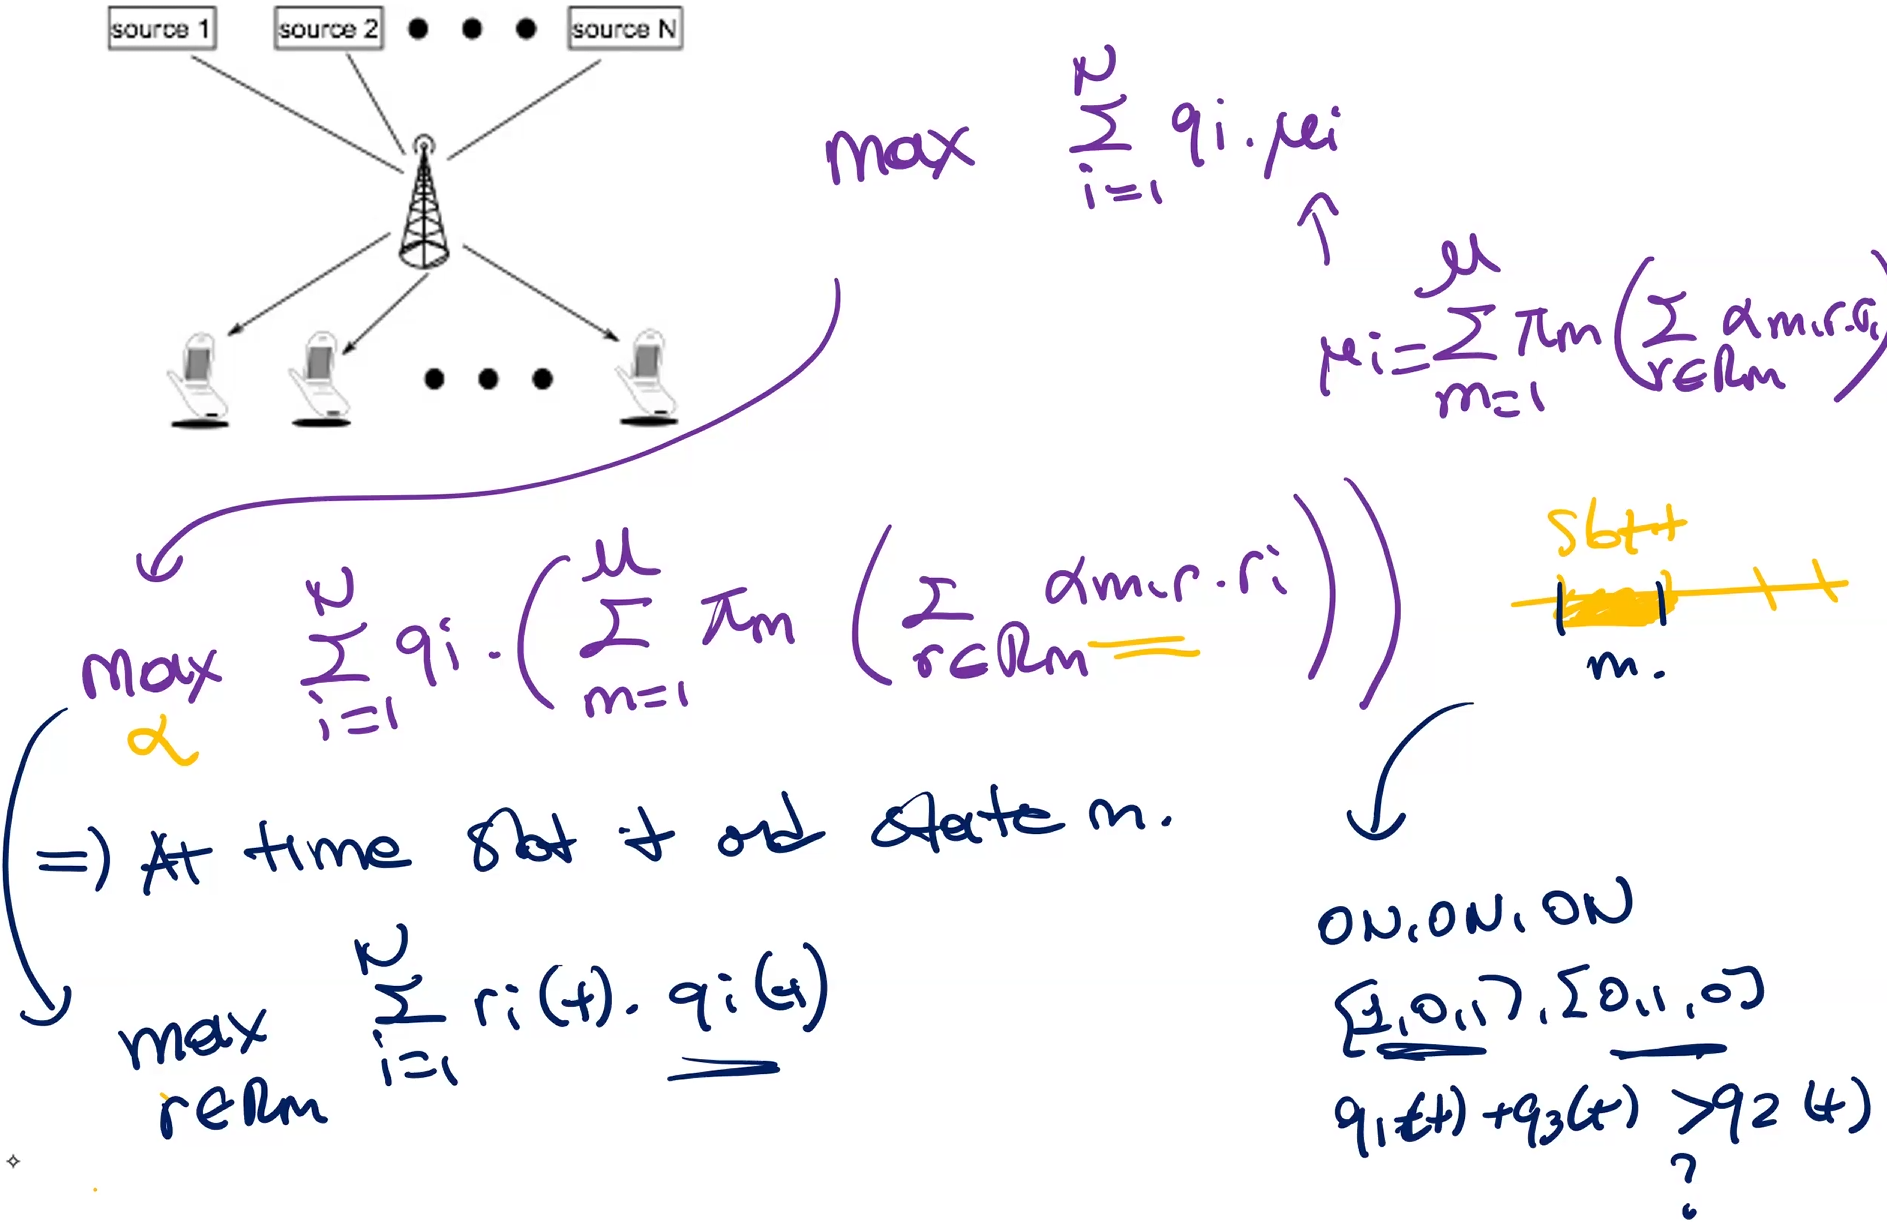 source 1 source 2 source N
max N Σ i=1 qi . μi
μi = M Σ m=1 πm ( Σ r∈Rm αm,r . ri )
max α N Σ i=1 qi . ( M Σ m=1 πm ( Σ r∈Rm αm,r . ri ) )
Slot t
m .
=) At time slot t and state m .
max r∈Rm N Σ i=1 ri (t) . qi (t)
ON, ON, ON
[1,0,1], [0,1,0]
q1(t) + q3(t) > q2 (t)
?